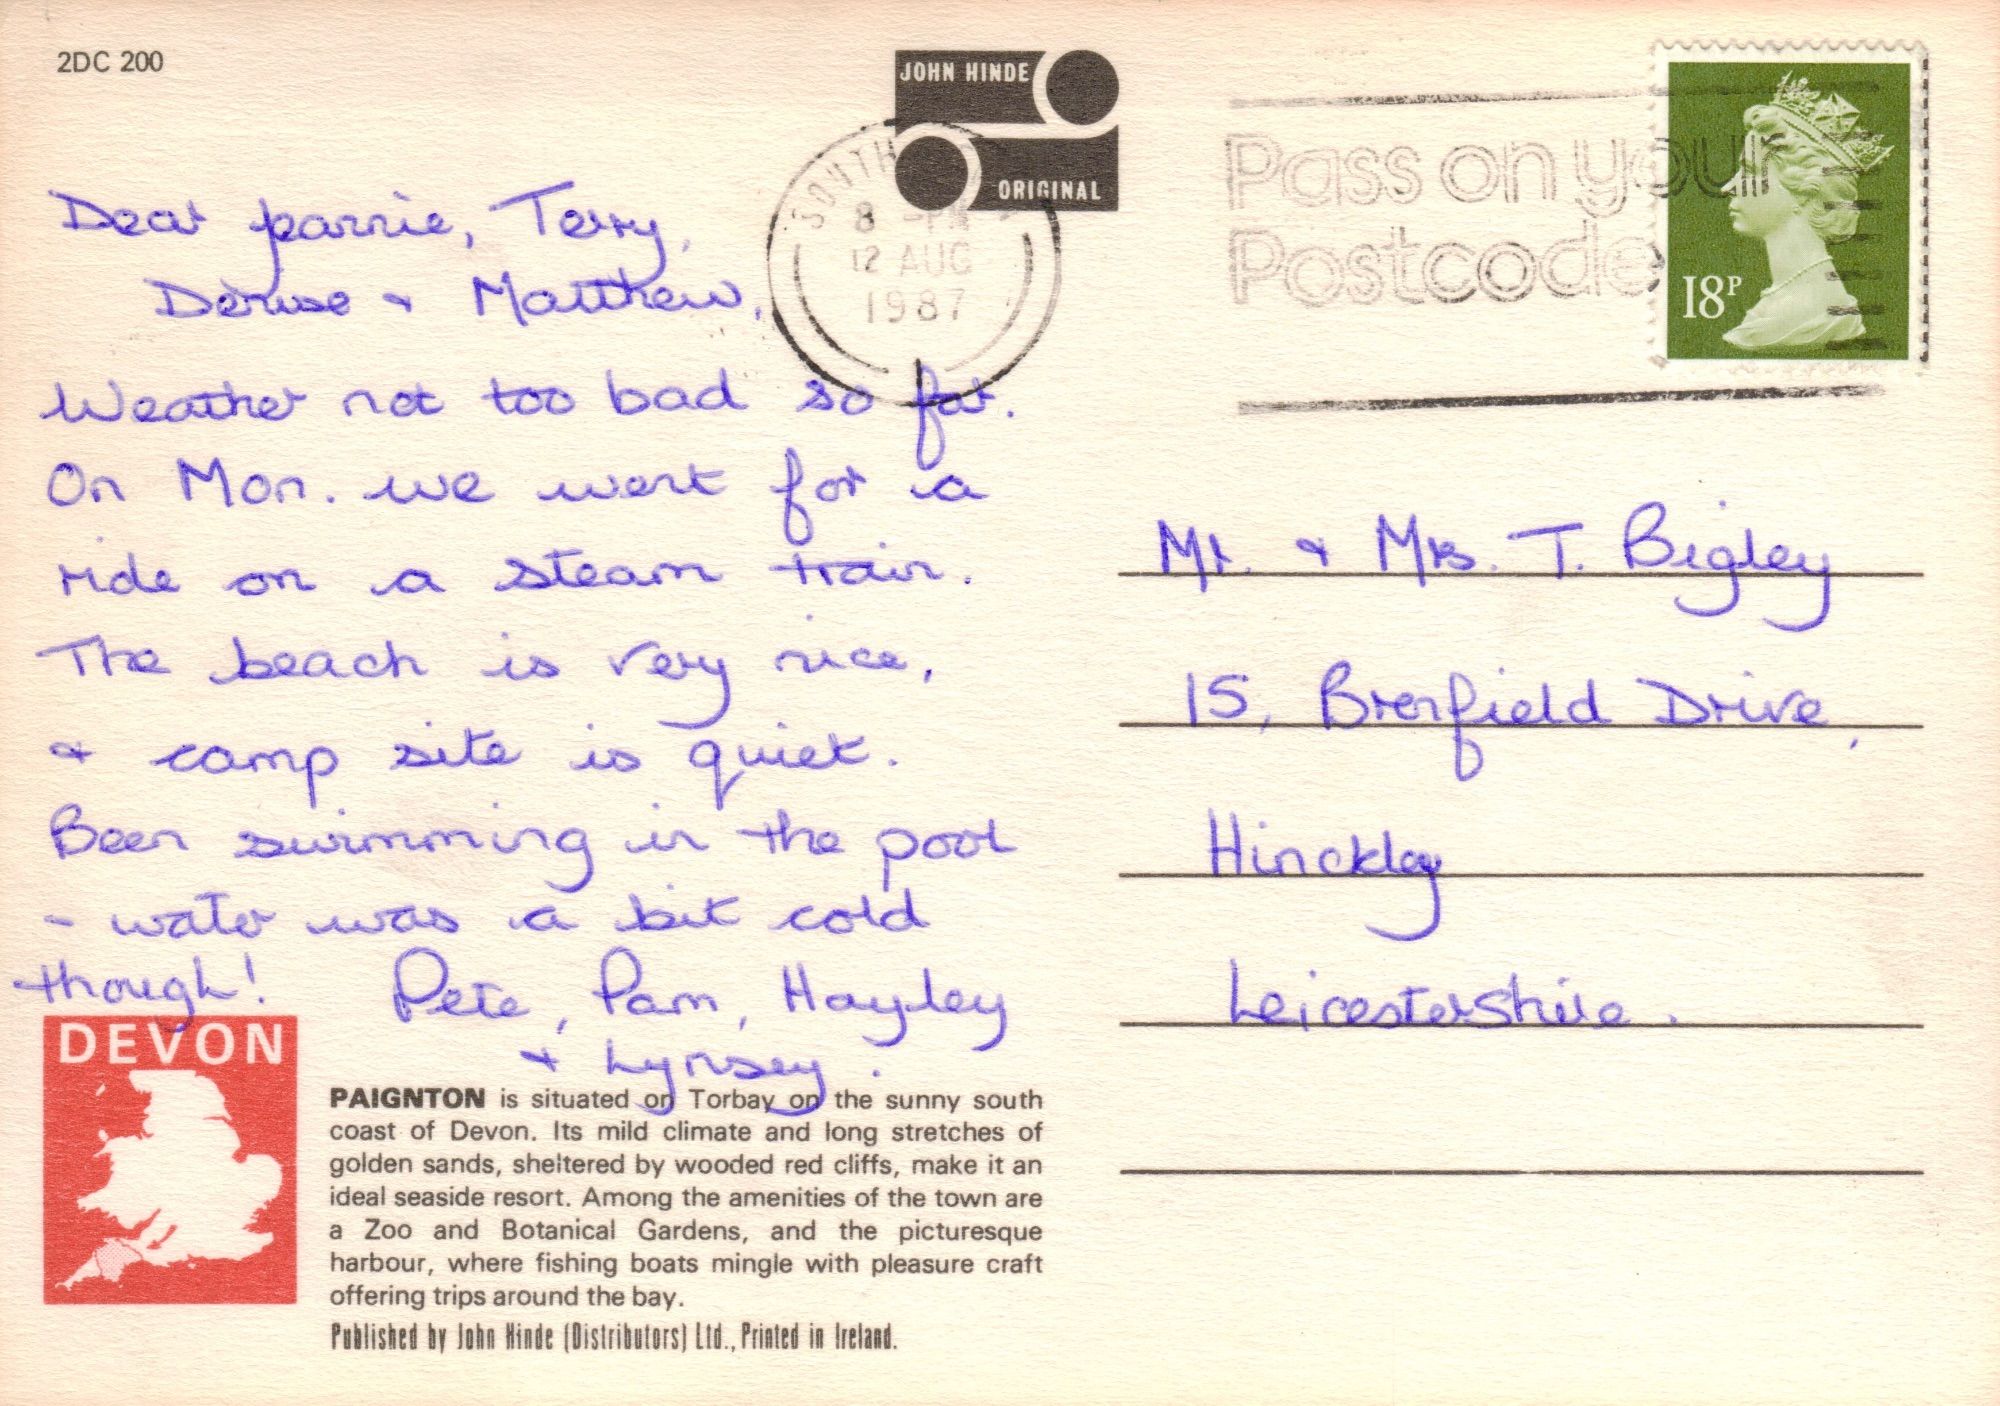 2DC 200
JOHN HINDE
ORIGINAL
SOUTH
8 -PM
12 AUG
1987
Pass on your
Postcode
18P
Dear Jeannie, Terry,
Denise & Matthew,
Weather not too bad so far.
On Mon. we went for a
ride on a steam train.
The beach is very nice,
& camp site is quiet.
Been swimming in the pool
- water was a bit cold
though! Pete, Pam, Hayley
& Lynsey.
Mr. & Mrs. T. Bigley
15, Brenfield Drive,
Hinckley
Leicestershire.
DEVON
PAIGNTON is situated on Torbay on the sunny south
coast of Devon. Its mild climate and long stretches of
golden sands, sheltered by wooded red cliffs, make it an
ideal seaside resort. Among the amenities of the town are
a Zoo and Botanical Gardens, and the picturesque
harbour, where fishing boats mingle with pleasure craft
offering trips around the bay.
Published by John Hinde (Distributors) Ltd., Printed in Ireland.